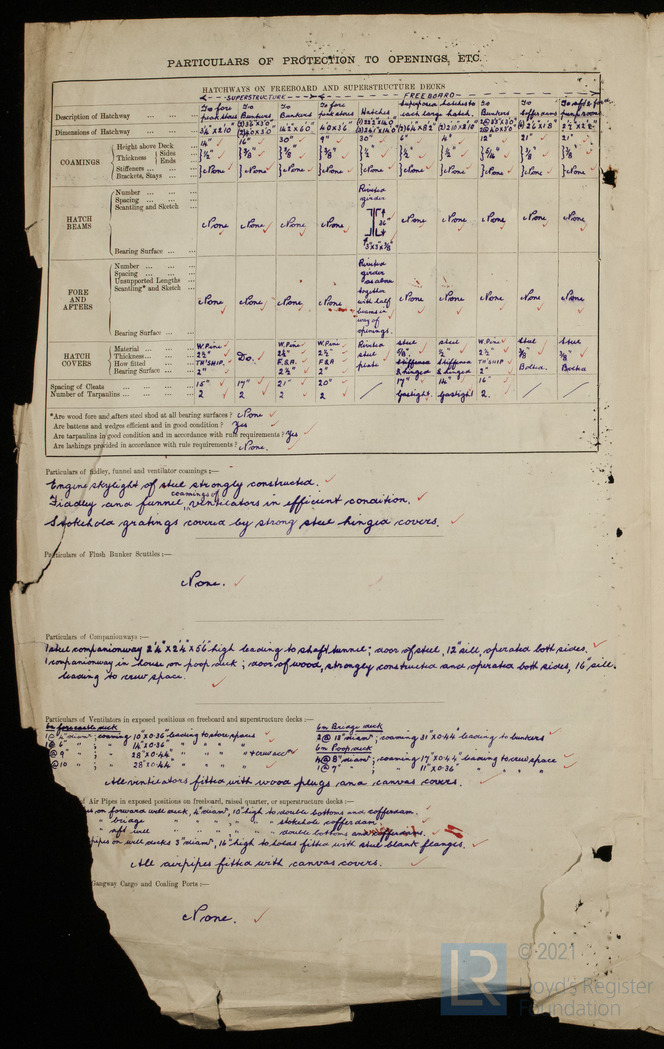 PARTICULARS OF PROTECTION TO OPENINGS, ETC.
HATCHWAYS ON FREEBOARD AND SUPERSTRUCTURE DECKS
SUPERSTRUCTURE FREEBOARD
Description of Hatchway To fore peak store To Bunkers To Bunkers To fore peak store Hatches hatches to each large hatch. To Bunkers To Cofferdams To aft & for
Dimensions of Hatchway 14'2"x6'0" 4'0x3'6"
COAMINGS
Height above Deck 14" 16" 30" 9" 30" 6" 4" 12" 21" 21"
Thickness Sides Ends 1/2" 3/8" 3/8" 3/8" 1/2" 1/2" 1/2" 5/16" 3/8" 3/8"
Stiffeners
Brackets, Stays None None None None None None None None None None
HATCH BEAMS
Number
Spacing
Scantling and Sketch
Riveted girder
36"
3"x3"x3/8"
None None None None None None None None None
Bearing Surface
FORE AND AFTERS
Number
Spacing
Unsupported Lengths
Scantling* and Sketch
Riveted girder as above together with half beams in way of openings.
None None None None None None None None None
Bearing Surface
HATCH COVERS
Material W.Pine Do. W.Pine W.Pine Riveted steel plate steel steel W.Pine Steel Steel
Thickness 2½" 2½" 2½" 5/8" ½" 2½" 3/8" 3/8"
How fitted TH'SHIP. F.&A. F&A Stiffened & hinged Stiffened & hinged TH'SHIP Bolted. Bolted
Bearing Surface 2" 2½" 2" 2"
Spacing of Cleats 15" 17" 21" 20" 17" 14" 16"
Number of Tarpaulins 2 2 2 2 Gastight. Gastight 2.
*Are wood fore and afters steel shod at all bearing surfaces? None
Are battens and wedges efficient and in good condition? Yes
Are tarpaulins in good condition and in accordance with rule requirements? Yes
Are lashings provided in accordance with rule requirements? None.
Particulars of Fidley, funnel and ventilator coamings:—
Engine skylight of steel strongly constructed.
Fiadley and funnel, coamings of ventilators in efficient condition.
Stokehold gratings covered by strong steel hinged covers.
Particulars of Flush Bunker Scuttles:—
None.
Particulars of Companionways:—
1 steel companionway 2'4"x2'4"x5'6" high leading to shaft tunnel; door of steel, 12" sill, operated both sides.
1 companionway in house on poop deck; door of wood, strongly constructed and operated both sides, 16" sill.
leading to crew space.
Particulars of Ventilators in exposed positions on freeboard and superstructure decks:—
On forecastle deck
1 @ 4" diamr; coaming 10"x0.36" leading to store spaces
@ 6" " ; " 14"x0.36" " " " "
@ 9" " ; " 28"x0.44" " " " "
@ 10" " ; " 28"x0.44" " " " "
On Bridge deck
2 @ 18" diamr; coaming 31"x0.44" leading to bunkers
On Poop deck
4 @ 8" diamr; coaming 17"x0.44" leading to crew space
1 @ 7" " " 11"x0.36" " " " "
All ventilators fitted with wood plugs and canvas covers.
of Air Pipes in exposed positions on freeboard, raised quarter, or superstructure decks:—
on forward well deck, 4" diamr, 10" high to double bottoms and cofferdam.
" bridge " " " ; " " " stokehold cofferdam
" aft well " " " ; " " " double bottoms and cofferdams.
pipes on well decks 3" diamr, 16" high to holds fitted with steel blank flanges.
All airpipes fitted with canvas covers.
Gangway Cargo and Coaling Ports:—
None.
LR
© 2021
Lloyd's Register
Foundation